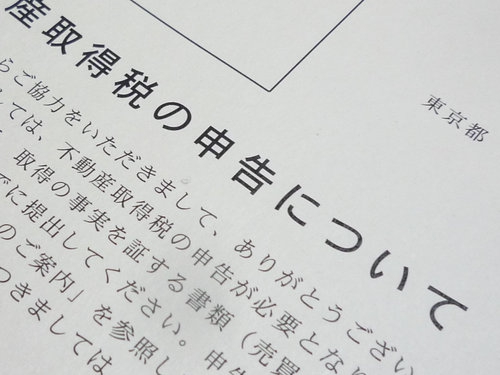 東京都
産取得税の申告について
らご協力をいただきまして、ありがとうござい
しては、不動産取得税の申告が必要とな
取得の事実を証する書類（売買
でに提出してください。申告
のご案内」を参照し
つきましては